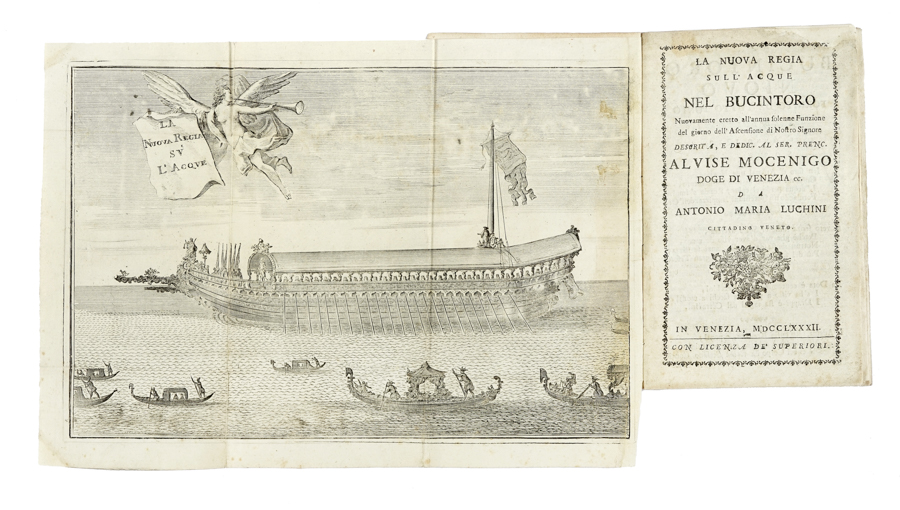 LA
NUOVA REGIA
SV
L'ACQVE
LA NUOVA REGIA
SULL' ACQUE
NEL BUCINTORO
Nuovamente eretto all'annua solenne Funzione
del giorno dell' Ascensione di Nostro Signore
DESCRITA, E DEDIC. AL SER. PRENC.
ALVISE MOCENIGO
DOGE DI VENEZIA ec.
DA
ANTONIO MARIA LUCHINI
CITTADINO VENETO.
IN VENEZIA, MDCCLXXXII.
CON LICENZA DE' SUPERIORI.